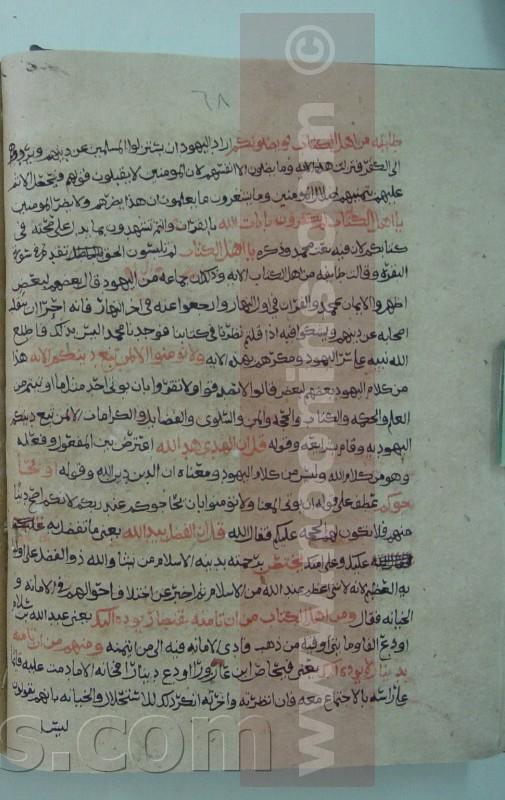 ٦٨
طايفه من اهل الكتاب لو يضلونكم اراد اليهود ان يستزلوا المسلمين عن دينهم ويردوهم
الى الكفر فنزلت هذه الايه وما يضلون الا انفسهم لان المومنين لا يقبلون قولهم فيحصل الاثم
عليهم بتمنيهم اضلال المومنين وما يشعرون ما يعلمون ان هذا يضرهم ولا يضر المومنين
يا اهل الكتاب لم تكفرون بايات الله بالقران وانتم تشهدون بما يدل على صحته في
كتابكم لان فيه نعت محمد وذكره يا اهل الكتاب لم تلبسون الحق بالباطل تقدم في سورة
البقره وقالت طايفه من اهل الكتاب الايه وذلك ان جماعه من اليهود قال بعضهم لبعض
اظهروا الايمان بمحمد والقران في اول النهار وارجعوا عنه في اخر النهار فانه احرى ان ينقلب
اصحابه عن دينهم ويشكوا فيه اذا قلتم نظرنا في كتابنا فوجدنا محمد ليس بذلك فاطلع
الله نبيه على سر اليهود ومكرهم بهذه الايه ولا تومنوا الا لمن تبع دينكم الايه هذا
من كلام اليهود بعضهم لبعض قالوا لا تصدقوا ولا تقروا بان يوتى احد مثل ما اوتيتم من
العلم والحكمه والكتاب والحجه والمن والسلوى والفضايل والكرامات الا لمن تبع دينكم
اليهوديه وقام بشرايعه وقوله قل ان الهدى هدى الله اعترض بين المفعول وفعله
وهو من كلام الله وليس من كلام اليهود ومعناه ان الدين دين الله وقوله او يحا
جوكم عطف على قوله ان يوتى المعنا ولا تومنوا بان يحاجوكم عند ربكم لانكم اصح دينا
منهم فلا تكون لهم الحجه عليكم فقال الله قل ان الفضل بيد الله يعني ما تفضل به
عليك وعلى امتك يختص برحمته بدينه الاسلام من يشا والله ذو الفضل على اوليا
يه العظيم لانه لا شي اعظم عند الله من الاسلام ثم اخبر عن اختلاف احوالهم في الامانه و
الخيانه فقال ومن اهل الكتاب من ان تامنه بقنطار يوده اليك يعني عبد الله بن سلام
اودع الفا وماتي اوقيه من ذهب فادى الامانه فيه الى من ايتمنه ومنهم من ان تامنه
بدينار لا يوده اليك يعني فنحاص ابن عازورا اودع دينارا فخانه الا ما دمت عليه قايما
على راسه بالاجتماع معه فان انظرته واخرته انكر ذلك للاستحلال والخيانه بانهم يقولون
ليس
www.manuscripts.com ©